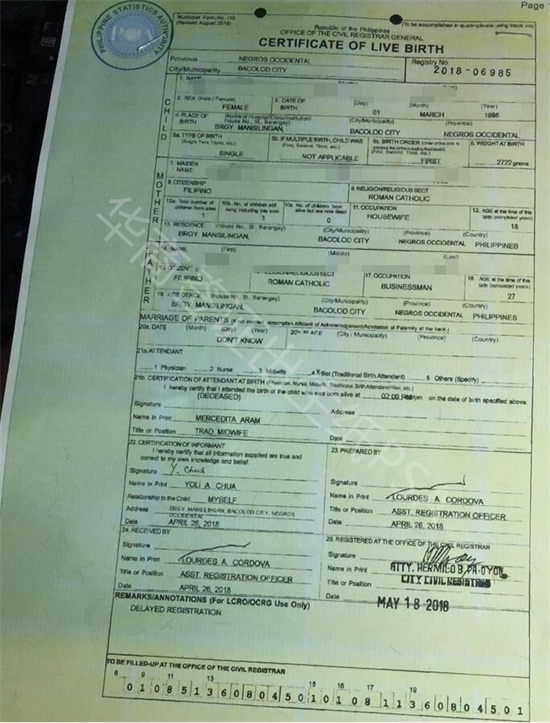 Page
Municipal Form No. 102
(Revised August 2016)
(To be accomplished in quadruplicate using black ink)
Republic of the Philippines
OFFICE OF THE CIVIL REGISTRAR GENERAL
CERTIFICATE OF LIVE BIRTH
PHILIPPINE STATISTICS AUTHORITY
Province NEGROS OCCIDENTAL
Registry No.
City/Municipality BACOLOD CITY
2018-06985
CHILD
1. NAME
2. SEX (Male / Female) 3. DATE OF BIRTH (Day) (Month) (Year)
FEMALE 01 MARCH 1995
4. PLACE OF BIRTH (Name of Hospital/Clinic/Institution/ House No., St., Barangay) (City/Municipality) (Province)
BRGY. MANSILINGAN, BACOLOD CITY NEGROS OCCIDENTAL
5a. TYPE OF BIRTH (Single, Twin, Triplet, etc.) 5b. IF MULTIPLE BIRTH, CHILD WAS (First, Second, Third, etc.) 5c. BIRTH ORDER 6. WEIGHT AT BIRTH
SINGLE NOT APPLICABLE FIRST 2722 grams
MOTHER
7. MAIDEN NAME
8. CITIZENSHIP 9. RELIGION/RELIGIOUS SECT
FILIPINO ROMAN CATHOLIC
10a. Total number of children born alive 10b. No. of children still living including this birth 10c. No. of children born alive but are now dead 11. OCCUPATION 12. AGE at the time of this birth (completed years)
1 1 0 HOUSEWIFE 18
13. RESIDENCE (House No., St., Barangay) (City/Municipality) (Province) (Country)
BRGY. MANSILINGAN, BACOLOD CITY NEGROS OCCIDENTAL PHILIPPINES
FATHER
14. NAME (First) (Middle) (Last)
15. CITIZENSHIP 16. RELIGION/RELIGIOUS SECT 17. OCCUPATION 18. AGE at the time of this birth (completed years)
FILIPINO ROMAN CATHOLIC BUSINESSMAN 27
19. RESIDENCE (House No., St., Barangay) (City/Municipality) (Province) (Country)
BRGY. MANSILINGAN, BACOLOD CITY NEGROS OCCIDENTAL PHILIPPINES
MARRIAGE OF PARENTS (If not married, accomplish Affidavit of Acknowledgement/Admission of Paternity at the back.)
20a. DATE (Month) (Day) (Year) 20b. PLACE (City/Municipality) (Province) (Country)
DON'T KNOW
21a. ATTENDANT
1 Physician 2 Nurse 3 Midwife 4 X Hilot (Traditional Birth Attendant) 5 Others (Specify)
21b. CERTIFICATION OF ATTENDANT AT BIRTH (Physician, Nurse, Midwife, Traditional Birth Attendant/Hilot, etc.)
I hereby certify that I attended the birth of the child who was born alive at 02:00 PM am/pm on the date of birth specified above.
(DECEASED)
Signature Address
Name in Print MERCEDITA ARAM
Title or Position TRAD. MIDWIFE Date
22. CERTIFICATION OF INFORMANT
I hereby certify that all information supplied are true and correct to my own knowledge and belief.
Signature Y. Chua
Name in Print YOLI A CHUA
Relationship to the Child MYSELF
Address BRGY. MANSILINGAN, BACOLOD CITY, NEGROS OCCIDENTAL
Date APRIL 26, 2018
23. PREPARED BY
Signature
Name in Print LOURDES A. CORDOVA
Title or Position ASST. REGISTRATION OFFICER
Date APRIL 26, 2018
24. RECEIVED BY
Signature
Name in Print LOURDES A. CORDOVA
Title or Position ASST. REGISTRATION OFFICER
Date APRIL 26, 2018
25. REGISTERED AT THE OFFICE OF THE CIVIL REGISTRAR
Signature
Name in Print ATTY. HERMILO B. PA-OYON
Title or Position CITY CIVIL REGISTRAR
Date MAY 18 2018
REMARKS/ANNOTATIONS (For LCRO/OCRG Use Only)
DELAYED REGISTRATION
TO BE FILLED-UP AT THE OFFICE OF THE CIVIL REGISTRAR
8 9 11 13 15 16 17 19
0 1 0 8 5 1 3 6 0 8 0 4 5 0 1 0 1 0 8 1 1 3 6 0 8 0 4 5 0 1